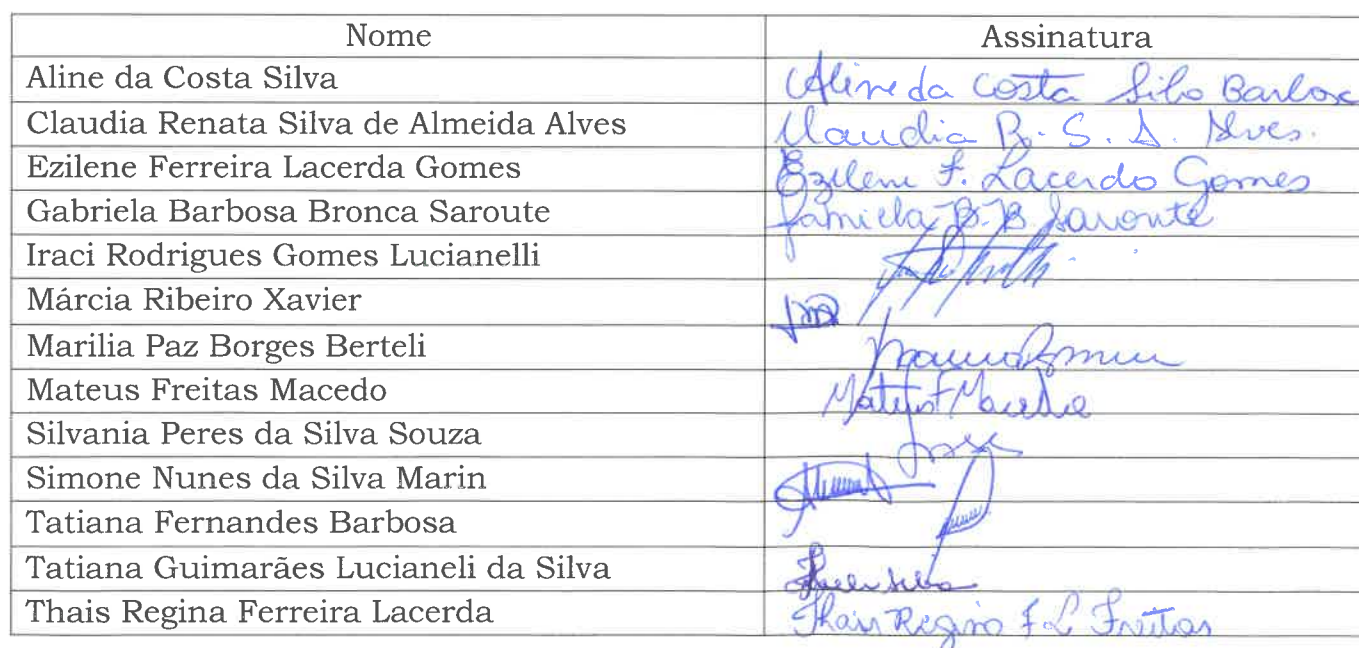 Nome Assinatura
Aline da Costa Silva Aline da Costa Silva Barbosa
Claudia Renata Silva de Almeida Alves Claudia R. S. A. Alves.
Ezilene Ferreira Lacerda Gomes Ezilene F. Lacerda Gomes
Gabriela Barbosa Bronca Saroute B. B Saroute
Iraci Rodrigues Gomes Lucianelli
Márcia Ribeiro Xavier
Marilia Paz Borges Berteli
Mateus Freitas Macedo Mateus F Macedo
Silvania Peres da Silva Souza
Simone Nunes da Silva Marin
Tatiana Fernandes Barbosa
Tatiana Guimarães Lucianeli da Silva
Thais Regina Ferreira Lacerda Thais Regina F. L Freitas